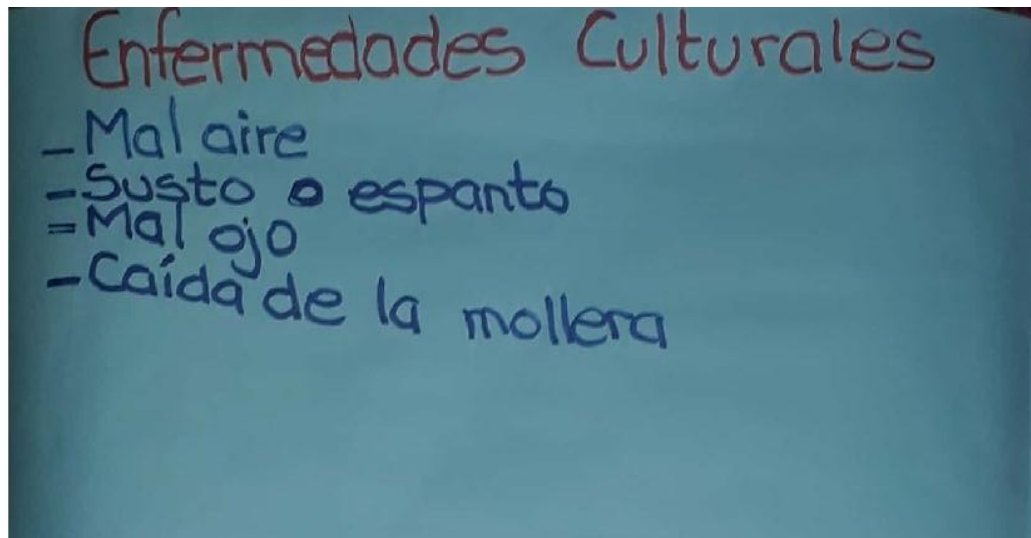 Enfermedades Culturales
- Mal aire
- Susto o espanto
= Mal ojo
- Caída de la mollera